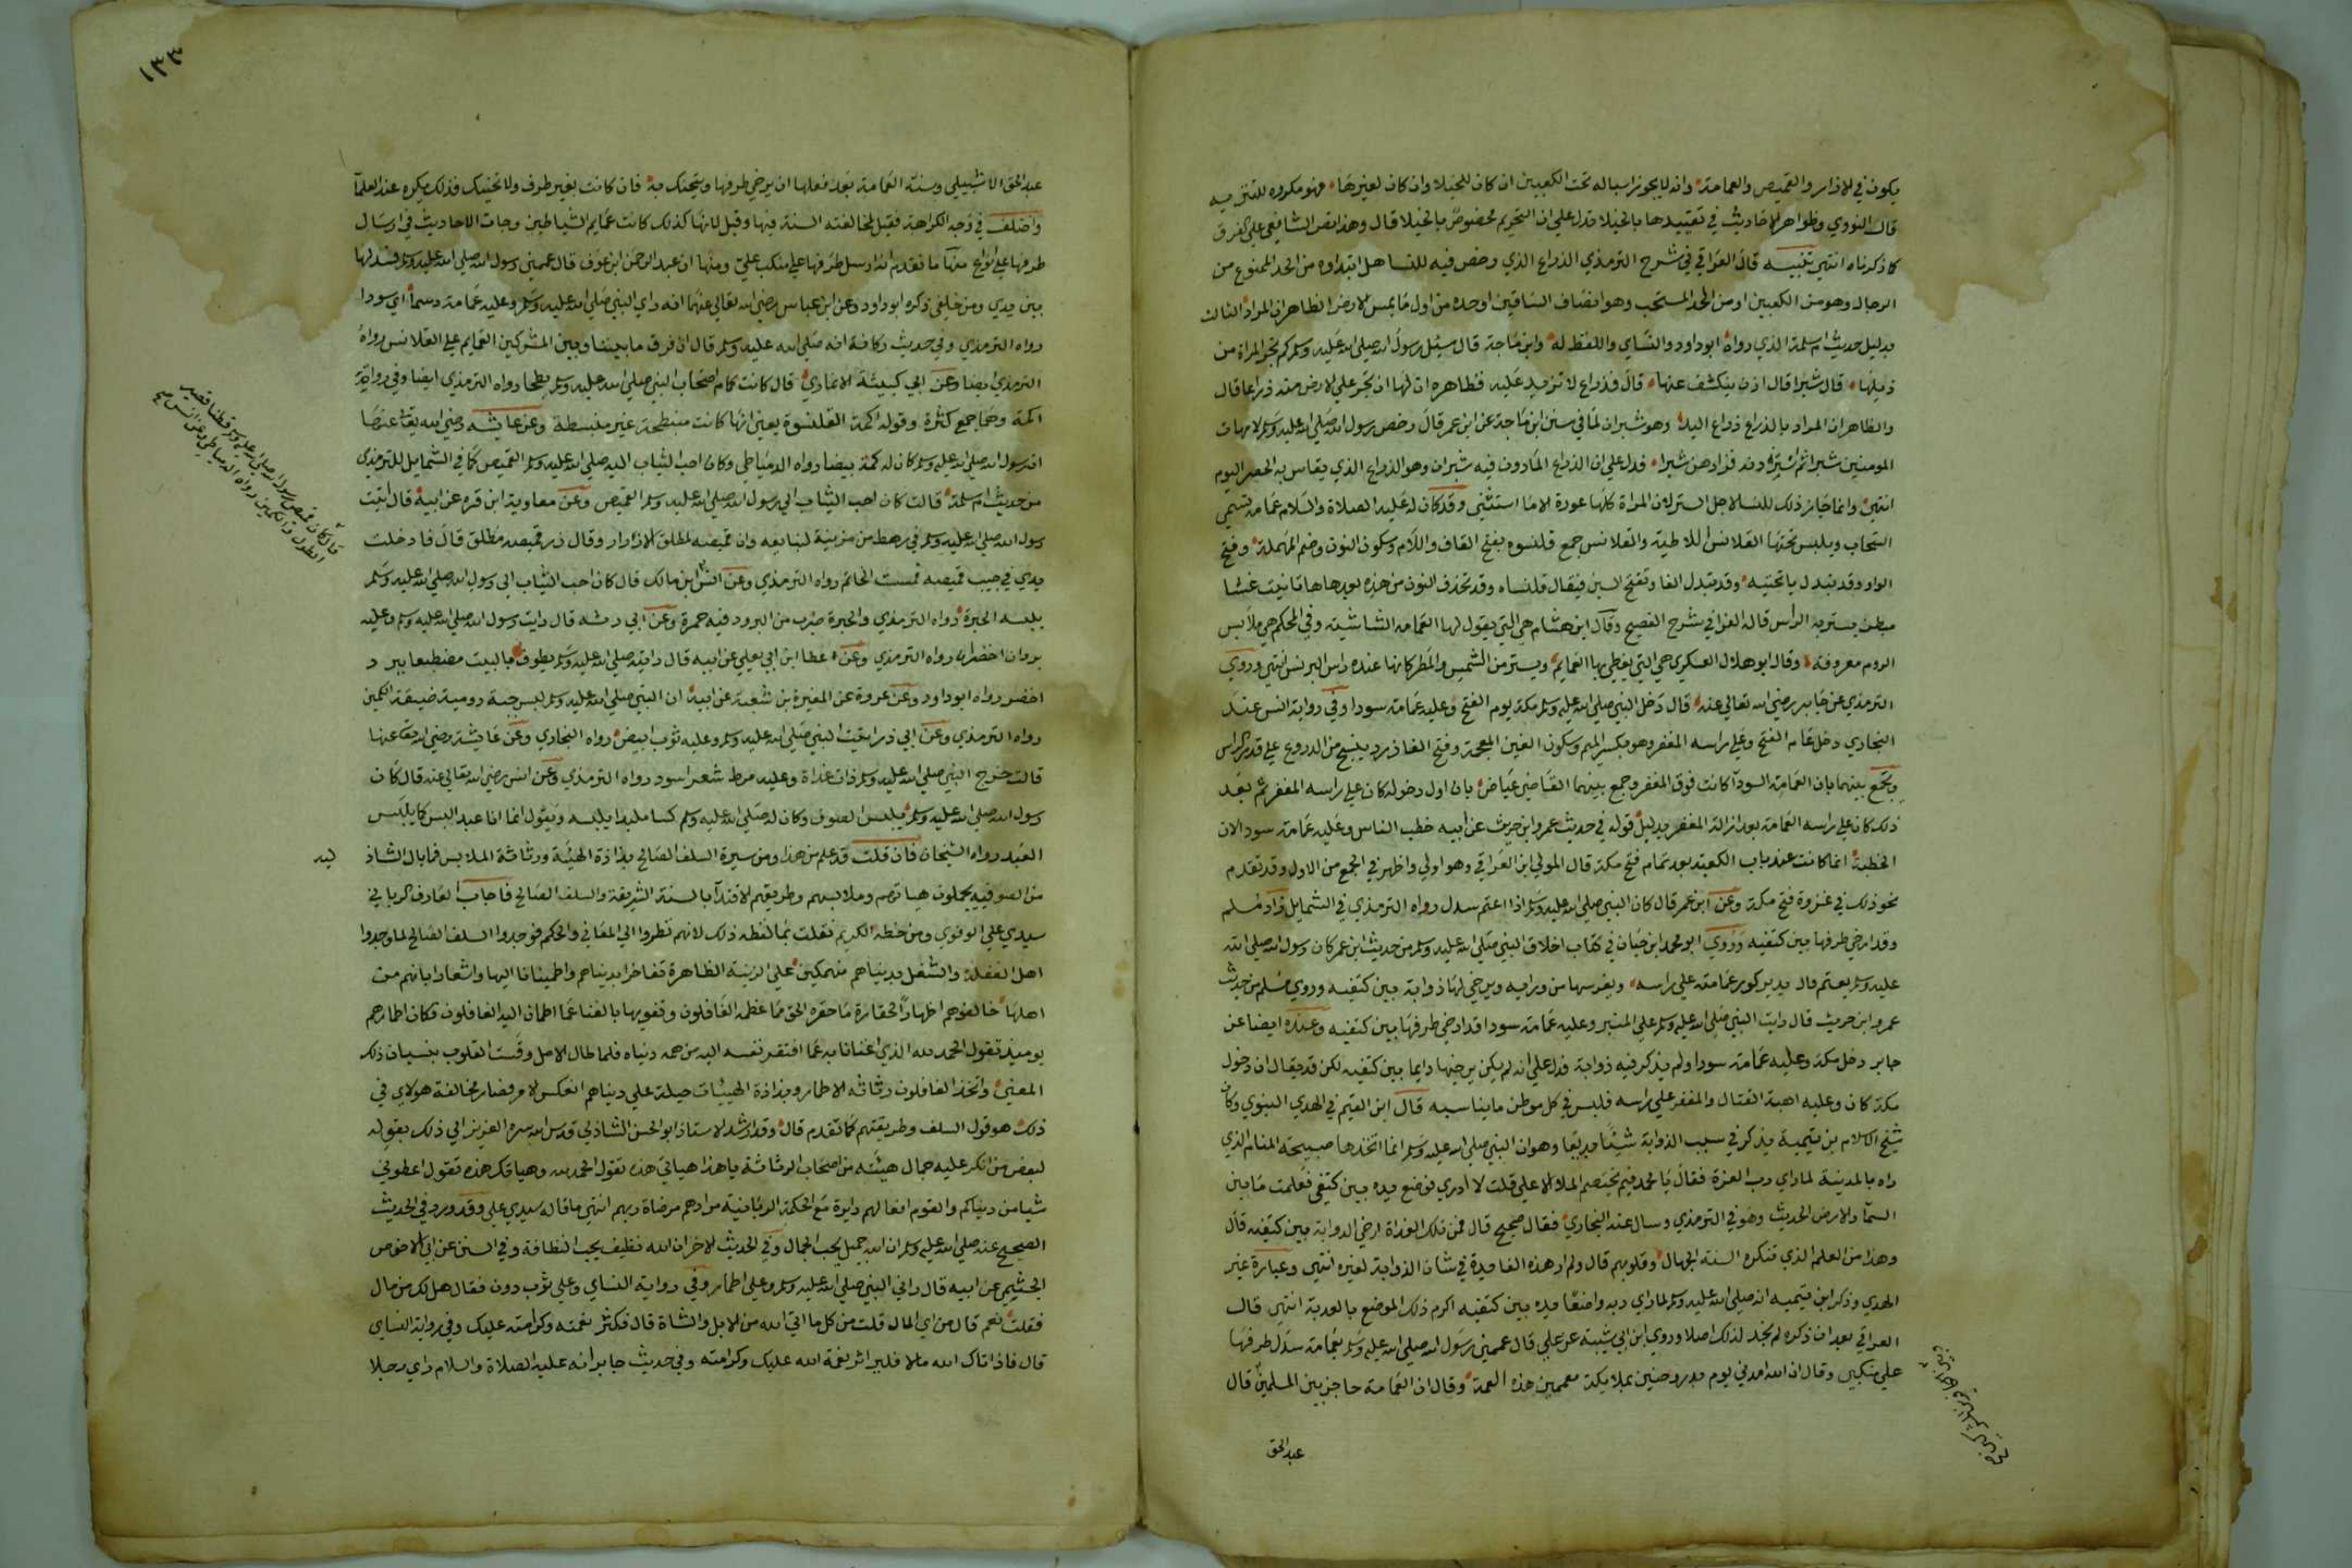 يكون في الازار والقميص والعمامة وانه لا يجوز اسباله تحت الكعبين ان كان للخيلا وان كان لغيرها فهو مكروه للتنزيه
قال النووي وظواهر الاحاديث في تقييدها بالخيلا تدل علي ان التحريم مخصوص بالخيلا قال وهذا نص الشافعي علي الفرق
كما ذكرناه انتهي تنبيه قال العراقي في شرح الترمذي الذراع الذي رخص فيه للنسا هل ابتداوه من الحد الممنوع من
الرجال وهو من الكعبين او من الحد المستحب وهو انصاف الساقين او حده من اول ما يمس الارض الظاهر ان المراد الثالث
بدليل حديث ام سلمة الذي رواه ابو داود والنساي واللفظ له وابن ماجة قال سئل رسول الله صلي الله عليه وسلم كم تجر المراة من
ذيلها قال شبرا قال اذن ينكشف عنها قال فذراع لا تزيد عليه فظاهره ان لها ان تجر علي الارض منه ذراعا قال
والظاهر ان المراد بالذراع ذراع اليد وهو شبران لما في سنن ابن ماجة عن ابن عمر قال رخص رسول الله صلي الله عليه وسلم لامهات
المومنين شبرا ثم استزدنه فزادهن شبرا فدل علي ان الذراع الماذون فيه شبران وهو الذراع الذي يقاس به الحصر اليوم
انتهي وانما جاز ذلك للنسا لاجل الستر لان المراة كلها عورة الا ما استثني وقد كان له عليه الصلاة والسلام عمامة تسمي
السحاب ويلبس تحتها القلانس اللاطية والقلانس جمع قلنسوة بفتح القاف واللام وسكون النون وضم المهملة وفتح
الواو وقد تبدل يا تحتية وقد تبدل الفا وتفتح السين فيقال قلنساه وقد تحذف النون من هذه بعدها ها تانيث غشا
مبطن يستر به الراس قاله الفرا في شرح الفصيح وقال ابن هشام هي التي يقول لها العامه الشاشيه وفي المحكم هي ملابس
الروم معروفة وقال ابو هلال العسكري هي التي يغطي بها العمايم ويستر من الشمس والمطر كانها عنده راس البرنس انتهي وروي
الترمذي عن جابر رضي الله تعالي عنه قال دخل النبي صلي الله عليه وسلم مكة يوم الفتح وعليه عمامة سودا وفي رواية انس عند
البخاري دخل عام الفتح وعلي راسه المغفر وهو بكسر الميم وسكون الغين المعجمة وفتح الفا زرد ينسج من الدروع علي قدر الراس
ويجمع بينهما بان العمامة السودا كانت فوق المغفر وجمع بينهما القاضي عياض بان اول دخوله كان علي راسه المغفر ثم بعد
ذلك كان علي راسه العمامة بعد ازالة المغفر بدليل قوله في حديث عمرو ابن حريث عن ابيه خطب الناس وعليه عمامة سودا لان
الخطبة انما كانت عند باب الكعبة بعد تمام فتح مكة قال المولي ابن العراقي وهو اولي واظهر في الجمع من الاول وقد تقدم
نحو ذلك في غزوة فتح مكة وعن ابن عمر قال كان النبي صلي الله عليه وسلم اذا اعتم سدل رواه الترمذي في الشمايل زاد مسلم
وقد ارخي طرفها بين كتفيه وروي ابو محمد ابن حبان في كتاب اخلاق النبي صلي الله عليه وسلم من حديث ابن عمر كان رسول الله صلي الله
عليه وسلم يعتم قال يدير كور عمامته علي راسه ويغرسها من ورايه ويرخي لها ذوابة بين كتفيه وروي مسلم من حديث
عمرو ابن حريث قال رايت النبي صلي الله عليه وسلم علي المنبر وعليه عمامة سودا قد ارخي طرفها بين كتفيه وعنده ايضا عن
جابر دخل مكة وعليه عمامة سودا ولم يذكر فيه ذوابة فدل علي انه لم يكن يرخيها دايما بين كتفيه لكن قد يقال ان دخول
مكة كان وعليه اهبة القتال والمغفر علي راسه فلبس في كل موطن ما يناسبه قال ابن القيم في الهدي النبوي وكان
شيخ الاسلام بن تيمية يذكر في سبب الذوابة شيئا بديعا وهو ان النبي صلي الله عليه وسلم انما اتخذها صبيحة المنام الذي
راه بالمدينة لما راي رب العزة فقال يا محمد فيم يختصم الملا الاعلي قلت لا ادري فوضع يده بين كتفي فعلمت ما بين
السما والارض الحديث وهو في الترمذي وسال عنه البخاري فقال صحيح قال فمن تلك الغداة ارخي الذوابة بين كتفيه قال
وهذا من العلم الذي تنكره السنة الجهال وقلوبهم قال ولم ار هذه الفايدة في شان الذوابة لغيره انتهي وعبارة غير
الهدي وذكر ابن تيمية انه صلي الله عليه وسلم لما راي ربه واضعا يده بين كتفيه اكرم ذلك الموضع بالعذبة انتهي قال
العراقي بعد ان ذكره لم نجد لذلك اصلا وروي ابن ابي شيبة عن علي قال عممني رسول الله صلي الله عليه وسلم بعمامة سدل طرفها
علي منكبي وقال ان الله امدني يوم بدر وحنين بملايكة معممين هذه العمة وقال ان العمامة حاجز بين المسلمين قال
عبد الحق
١٣٣
عبد الحق الاشبيلي وسنة العمامة بعد فعلها ان يرخي طرفها ويتحنك به فان كانت بغير طرف ولا تحنيك فذلك يكره عند العلما
واختلف في وجه الكراهة فقيل لمخالفته السنة فيها وقيل لانها كذلك كانت عمايم الشياطين وجات الاحاديث في ارسال
طرفها علي انواع منها ما تقدم انه ارسل طرفها علي منكب علي ومنها ان عبد الرحمن ابن عوف قال عممني رسول الله صلي الله عليه وسلم فسدلها
بين يدي ومن خلفي ذكره ابو داود وعن ابن عباس رضي الله تعالي عنهما انه راي النبي صلي الله عليه وسلم وعليه عمامة دسما اي سودا
رواه الترمذي وفي حديث ركانة انه صلي الله عليه وسلم قال ان فرق ما بيننا وبين المشركين العمايم علي القلانس رواه
الترمذي ايضا وعن ابي كبشة الانماري قال كانت كمام اصحاب النبي صلي الله عليه وسلم بطحا رواه الترمذي ايضا وفي رواية
اكمة وهما جمع كثرة وقوله اكمة القلنسوة يعني انها كانت منبطحة غير منبسطة وعن عايشة رضي الله تعالي عنها
ان رسول الله صلي الله عليه وسلم كان له كمة بيضا رواه الدمياطي وكان احب الثياب اليه صلي الله عليه وسلم القميص كما في الشمايل للترمذي
من حديث ام سلمة قالت كان احب الثياب الي رسول الله صلي الله عليه وسلم القميص وعن معاوية ابن قره عن ابيه قال اتيت
رسول الله صلي الله عليه وسلم في رهط من مزينة لنبايعه وان قميصه لمطلق الازرار وقال زر قميصه مطلق قال فادخلت
يدي في جيب قميصه فمسست الخاتم رواه الترمذي وعن انس ابن مالك قال كان احب الثياب الي رسول الله صلي الله عليه وسلم
يلبسه الحبرة رواه الترمذي والحبرة ضرب من البرود فيه حمرة وعن ابي رمثه قال رايت رسول الله صلي الله عليه وسلم وعليه
بردان اخضران رواه الترمذي وعن عطا ابن ابي يعلي عن ابيه قال رايته صلي الله عليه وسلم يطوف بالبيت مضطبعا ببرد
اخضر رواه ابو داود وعن عروة عن المغيرة بن شعبة عن ابيه ان النبي صلي الله عليه وسلم لبس جبة رومية ضيقة الكمين
رواه الترمذي وعن ابي ذر اتيت النبي صلي الله عليه وسلم وعليه ثوب ابيض رواه البخاري وعن عايشة رضي الله تعالي عنها
قالت خرج النبي صلي الله عليه وسلم ذات غداة وعليه مرط شعر اسود رواه الترمذي وعن انس رضي الله تعالي عنه قال كان
رسول الله صلي الله عليه وسلم يلبس الصوف وكان له صلي الله عليه وسلم كسا ملبدا يلبسه ويقول انما انا عبد البس كما يلبس
العبد رواه الشيخان فان قلت قد علم من هذا ومن سيرة السلف الصالح بذاذة الهيئة ورثاثة الملابس فما بال الشاذ
من الصوفيه يجملون هياتهم وملابسهم وطريقهم الاقتدا بالسنة الشريفة والسلف الصالح فاجاب العارف الرباني
سيدي علي الوفوي ومن خطه الكريم نقلت بما لفظه ذلك لانهم نظروا الي المعاني والحكم فوجدوا السلف الصالح لما وجدوا
اهل الغفلة والشغل بدنياهم منهمكين علي الزينة الظاهرة تفاخرا بدنياهم واطمينانا اليها واشعارا بانهم من
اهلها خالفوهم اظهارا لحقارة ما حقره الحق مما عظمه الغافلون وتفويها بالغنا عما اطمان اليه الغافلون فكان اطمارهم
يوميذ تقول الحمد لله الذي اغنانا به عما افتقر نفسه اليه من همه دنياه فلما طال الامل وقست القلوب بنسيان ذلك
المعني واتخذ الغافلون رثاثة الاطمار وبذاذة الهيئات حيلة علي دنياهم انعكس الامر فصار مخالفة هولاي في
ذلك هو قول السلف وطريقتهم كما تقدم قال وقد ارشد الاستاذ ابو الحسن الشاذلي قدس الله سره العزيز الي ذلك بقوله
لبعض من انكر عليه جمال هيئته من اصحاب الرثاثة يا هذا هياتي هذه تقول الحمد لله وهياتك هذه تقول اعطوني
شيا من دنياكم والقوم افعالهم دايرة مع الحكمة الربانية مرادهم مرضاة ربهم انتهي ما قاله سيدي علي وقد ورد في الحديث
الصحيح عنه صلي الله عليه وسلم ان الله جميل يحب الجمال وفي الحديث الاخر ان الله نظيف يحب النظافة وفي السنن عن ابي الاحوص
الجشيمي عن ابيه قال راني النبي صلي الله عليه وسلم وعلي اطمار وفي رواية النساي وعلي ثوب دون فقال هل لك من مال
فقلت نعم قال من اي المال قلت من كل ما اتي الله من الابل والشاة قال فكثر نعمته وكرامته عليك وفي رواية النساي
قال فاذا اتاك الله مالا فلير اثر نعمة الله عليك وكرامته وفي حديث جابر انه عليه الصلاة والسلام راي رجلا
قال كان قميص رسول الله صلي الله عليه وسلم قطنا قصير
الطول والكمين رواه الدمياطي وعن انس
لبد